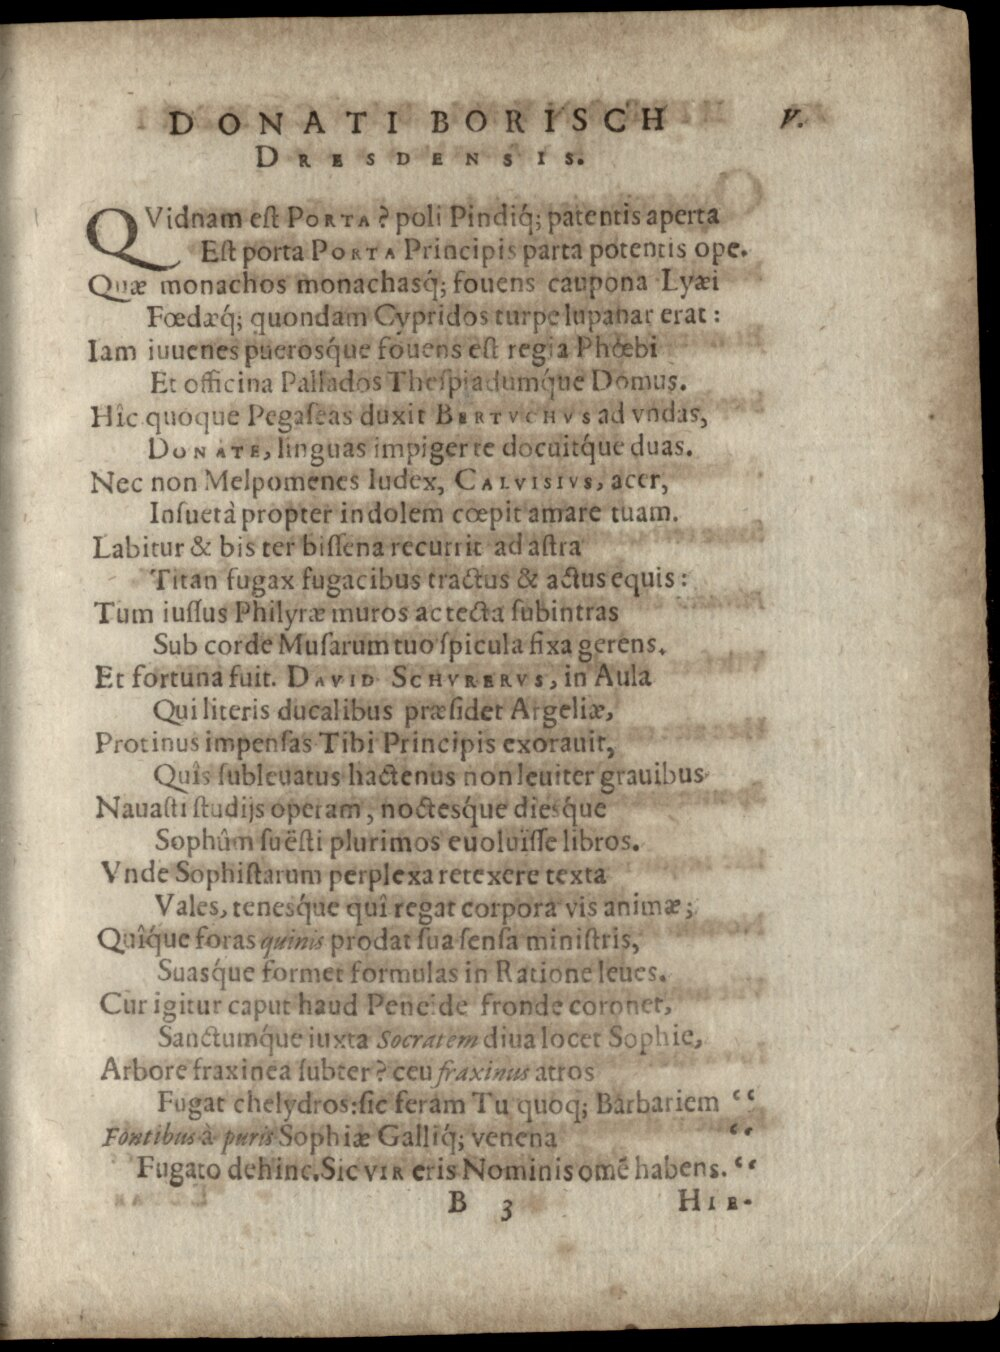 DONATI BORISCH V.
DRESDENSIS.
QVidnam est PORTA? poli Pindiq́; patentis aperta
Est porta PORTA Principis parta potentis ope.
Quæ monachos monachasq́; fouens caupona Lyæi
Fœdæq́; quondam Cypridos turpe lupanar erat:
Iam iuuenes puerosque fouens est regia Phœbi
Et officina Pallados Thespiadumq́ue Domus.
Hîc quoque Pegaseas duxit BERTVCHVS ad vndas,
DONATE, linguas impiger te docuitq́ue duas.
Nec non Melpomenes Iudex, CALVISIVS, acer,
Insuetà propter indolem cœpit amare tuam.
Labitur & bis ter bissena recurrit ad astra
Titan fugax fugacibus tractus & actus equis:
Tum iussus Philyræ muros ac tecta subintras
Sub corde Musarum tuo spicula fixa gerens.
Et fortuna fuit. DAVID SCHVRERVS, in Aula
Qui literis ducalibus præsidet Argeliæ,
Protinus impensas Tibi Principis exorauit,
Quîs subleuatus hactenus non leuiter grauibus
Nauasti studijs operam, noctesq́ue diesq́ue
Sophûm suësti plurimos euoluïsse libros.
Vnde Sophistarum perplexa retexere texta
Vales, tenesq́ue quî regat corpora vis animæ;
Quîq́ue foras quinis prodat sua sensa ministris,
Suasq́ue formet formulas in Ratione leues.
Cur igitur caput haud Peneide fronde coronet,
Sanctumq́ue iuxta Socratem diua locet Sophie,
Arbore fraxinea subter? ceu fraxinus atros
Fugat chelydros: sic feram Tu quoq; Barbariem “
Fontibus à puris Sophiæ Galliq́; venena “
Fugato dehinc. Sic VIR eris Nominis omē habens. “
B 3 HIE-